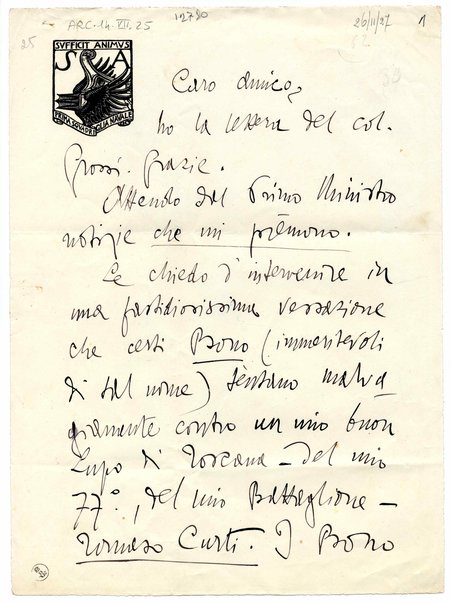 ARC.14.VII.25
12780
26/11/27
1
25
SVFFICIT ANIMVS
S A
PRIMA SQVADRIGLIA NAVALE
Caro amico,
ho la lettera del col.
Grossi. Grazie.
Attendo dal Primo Ministro
notizie che mi prèmono.
Le chiedo d'intervenire in
una fastidiosissima vessazione
che certi Bono (immeritevoli
di tal nome) tentano malva
giamente contro un mio buon
Lupo di Toscana – del mio
77°, del mio Battaglione –
Tomaso Curti. I Bono